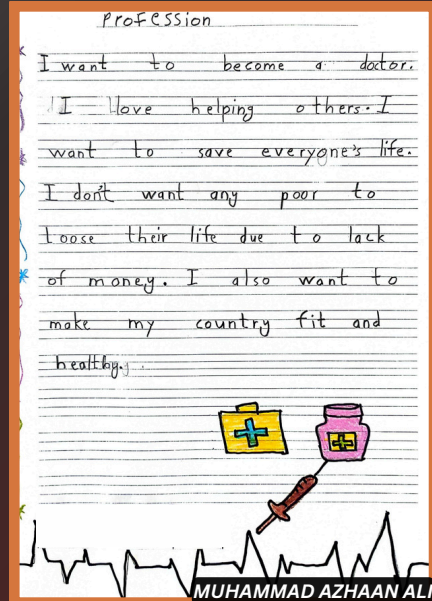 Profession
I want to become a doctor.
I love helping others. I
want to save everyone's life.
I don't want any poor to
loose their life due to lack
of money. I also want to
make my country fit and
healthy.
MUHAMMAD AZHAAN ALI